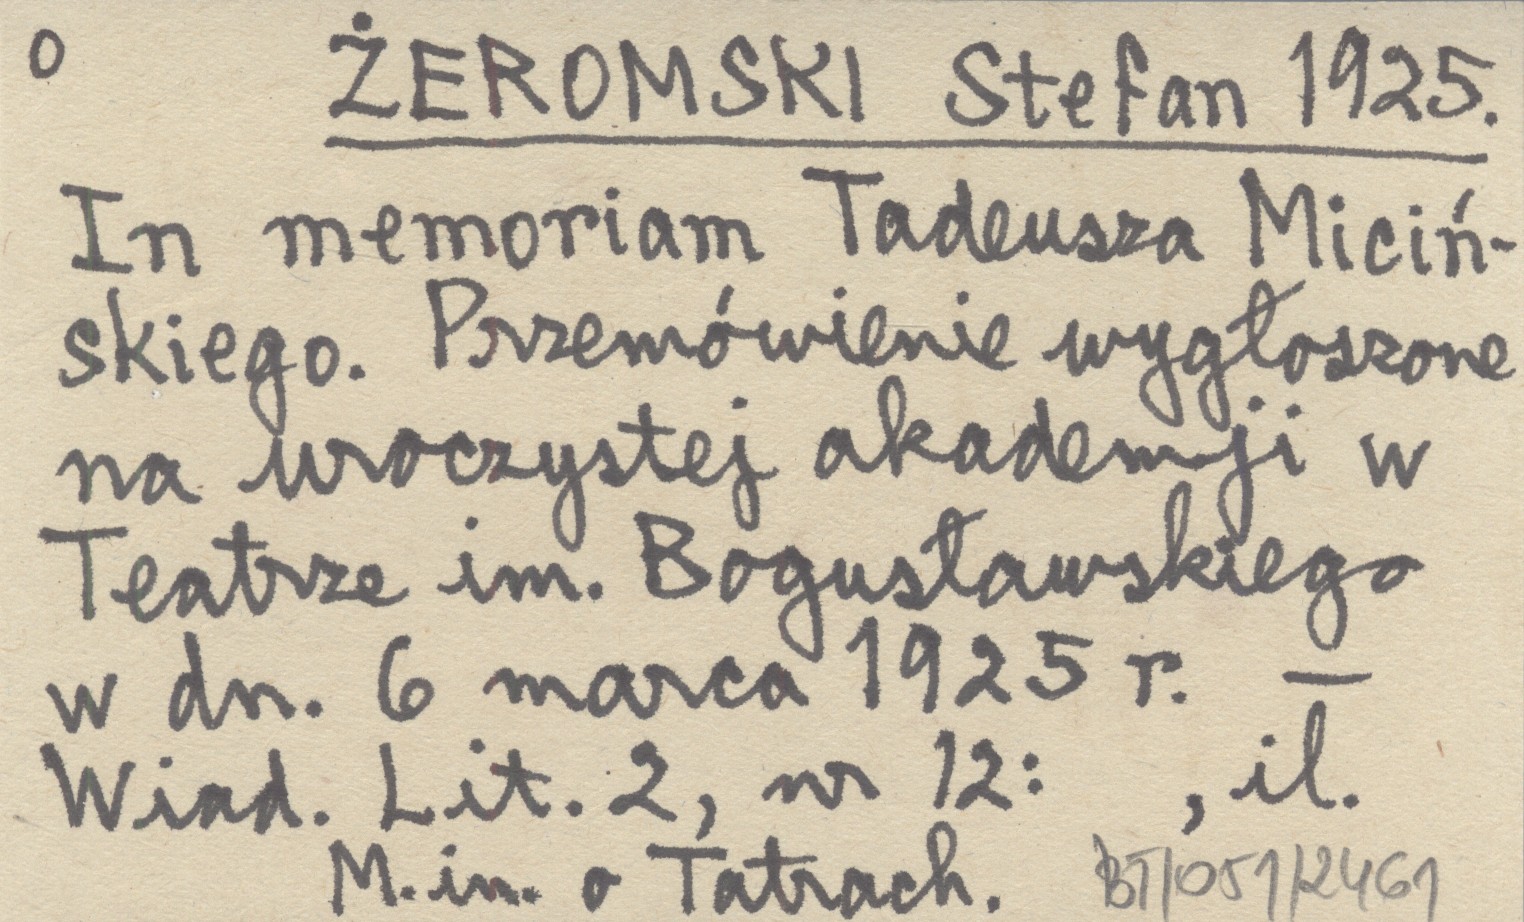 o ŻEROMSKI Stefan 1925.
In memoriam Tadeusza Miciń-
skiego. Przemówienie wygłoszone
na uroczystej akademji w
Teatrze im. Bogusławskiego
w dn. 6 marca 1925 r. —
Wiad. Lit. 2, nr 12: , il.
M.in. o Tatrach. BT/051/2461